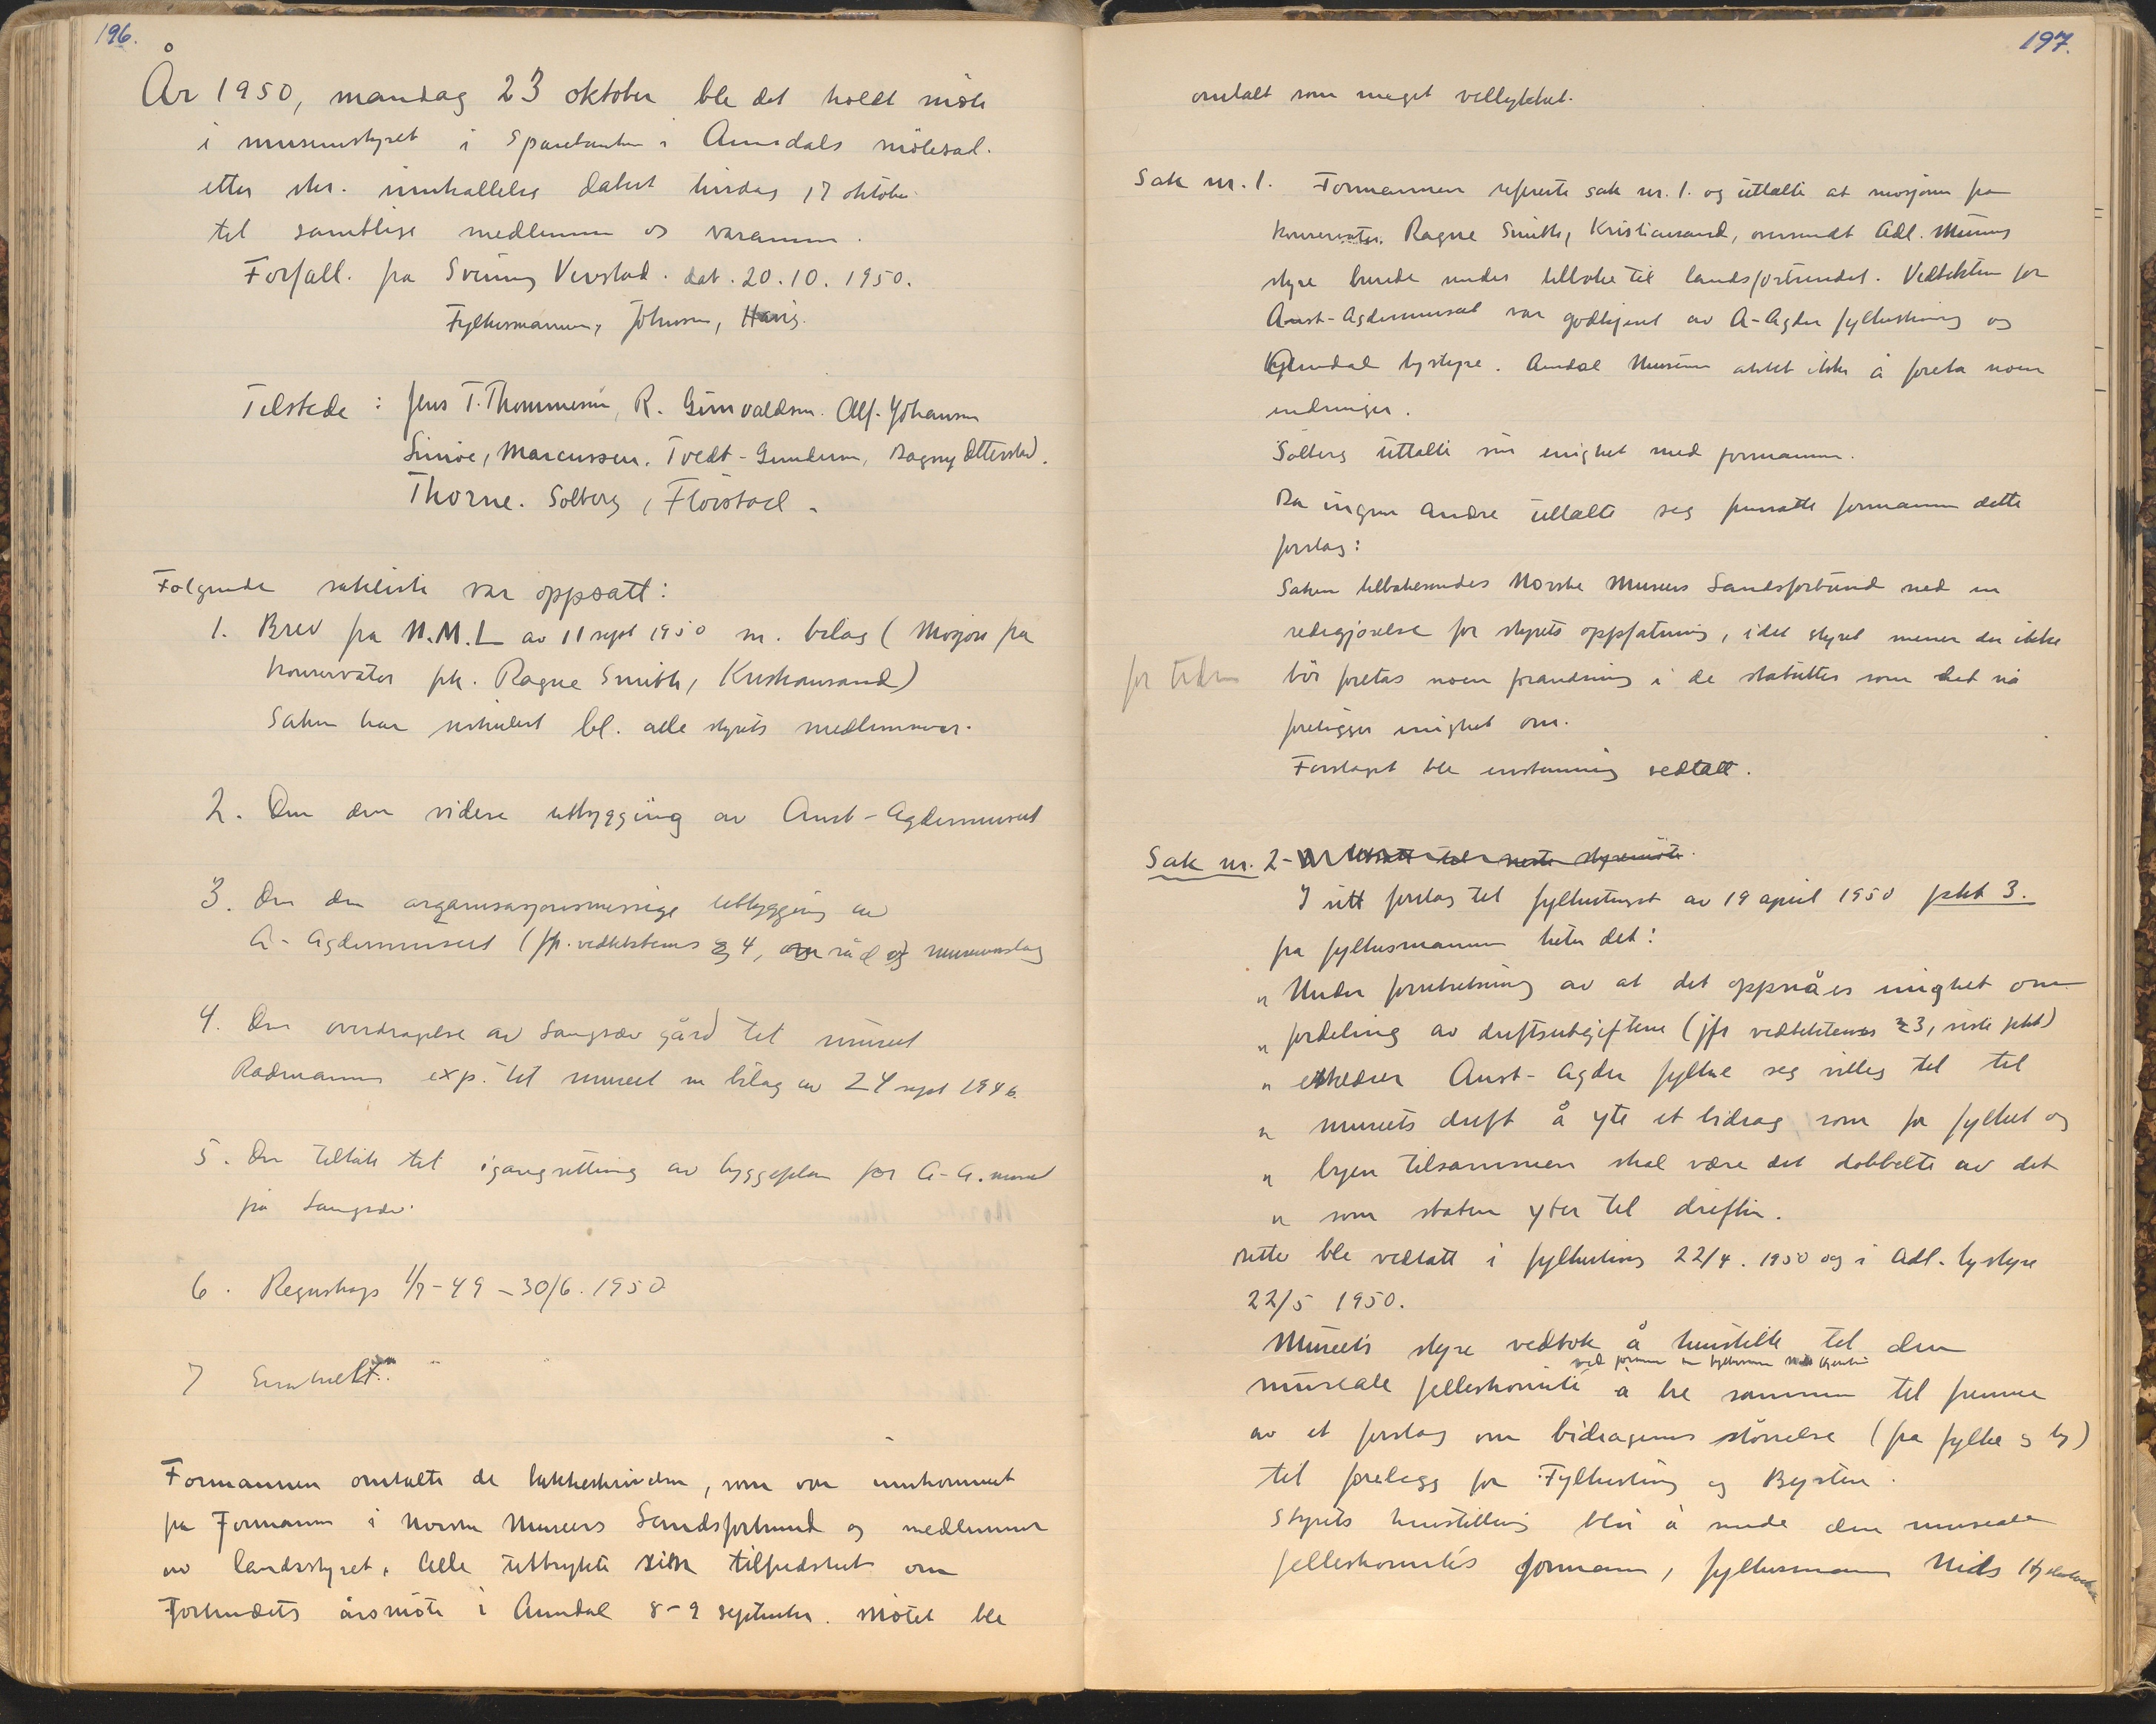 196.
År 1950, mandag 23 oktober ble det holdt möte
i museumstyret i Sparebanken i Arendals mötesal.
etter skr. innkallelse datert tirsdag 17 oktober
til samtlige medlemmer og varamenn.
Forfall. fra Sveinung Vevstad. dat. 20.10.1950.
Fylkesmannen, Johnsen,
Tilstede: Jens T. Thommesen, R. Gunvaldsen. Alf. Johansen
Simoe, Marcussen. Tvedt-Gundersen, Dagny Ættestad.
Thorne. Solberg, Flöistad.
Følgende sakliste var oppsatt:
1. Brev fra N.M.L av 11 sept 1950 m. bilag (Mosjon fra
konservator frk. Ragne Smith, Kristiansand)
Saken har sirkulert bl. alle styrets medlemmer.
2. Om den videre utbygging av Aust-Agdermuseet
3. Om den organisasjonsmessige utbygging av
A-Agdermuseet (jfr. vedtektenes § 4, om råd og museumslag
4. Om overdragelse av Langsæ gård til museet
Rådmannens exp. til museet m bilag av 24 sept 1946.
5. Om tiltak til igangsetting av byggeplan for A-A. museet
på Langsæ.
6. Regnskap 1/7-49 - 30/6. 1950
7 Eventuelt.
Formannen omtalte de takkeskrivelser, som var innkommet
fra Formannen i Norske Museers Landsforbund og medlemmer
av landsstyret. Alle uttrykte sin tilfredshet om
Forbundets årsmöte i Arendal 8-9 september. Mötet ble
197.
omtalt som meget vellykket.
Sak nr. 1. Formannen refererte sak nr. 1. og uttalte at mosjonen fra
konservator Ragne Smith, Kristiansand, oversendt Adl. Museums
styre burde sendes tilbake til landsforbundet. Vedtektene for
Aust-Agdermuseet var godkjent av A-Agder fylkesting og
Arendal bystyre. Arendal Museum aktet ikke å foreta noen
endringer.
Solberg uttalte sin enighet med formannen.
Da ingen andre uttalte seg fremsatte formannen dette
forslag:
Saken tilbakesendes Norske Museers Landsforbund med en
redegjørelse for styrets oppfatning, idet styret mener der ikke
for tiden
bör foretas noen forandring i de statutter som det nå
foreligger enighet om.
Forslaget ble enstemmig vedtatt.
Sak nr. 2 - Utsatt til neste styremöte.
I sitt forslag til fylkestinget av 19 april 1950 pkt 3.
fra fylkesmannen heter det:
„ Under forutsetning av at det oppnåes enighet om
„ fordeling av driftsutgiftene (jfr vedtektenes § 3, siste pkt)
„ erklærer Aust-Agder fylke seg villig til til
„ museets drift å yte et bidrag som for fylket og
„ byen tilsammen skal være det dobbelte av det
„ som staten yter til driften.
Dette ble vedtatt i fylkesting 22/4. 1950 og i Adl. bystyre
22/5 1950.
Museets styre vedtok å henstille til den
ved formannen fylkesmann Nils
museale felleskomité å tre sammen til fremme
av et forslag om bidragenes störrelse (fra fylke og by)
til forelegg for Fylkesting og Bystyre.
Styrets henstilling blir å sende den museale
felleskomités formann, fylkesmann Nils